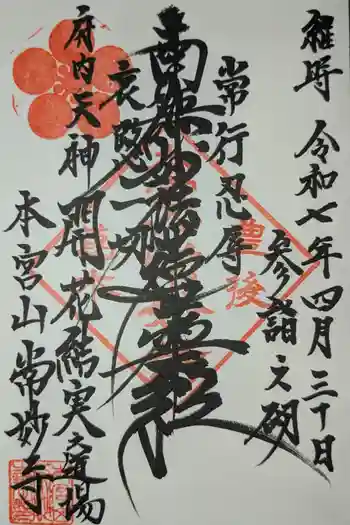 維時 令和七年四月三十日
参詣之砌
常行忍辱
南無妙法蓮華経
哀愍一切
府内天神 開花結実之道場
本宮山常妙寺
豊後